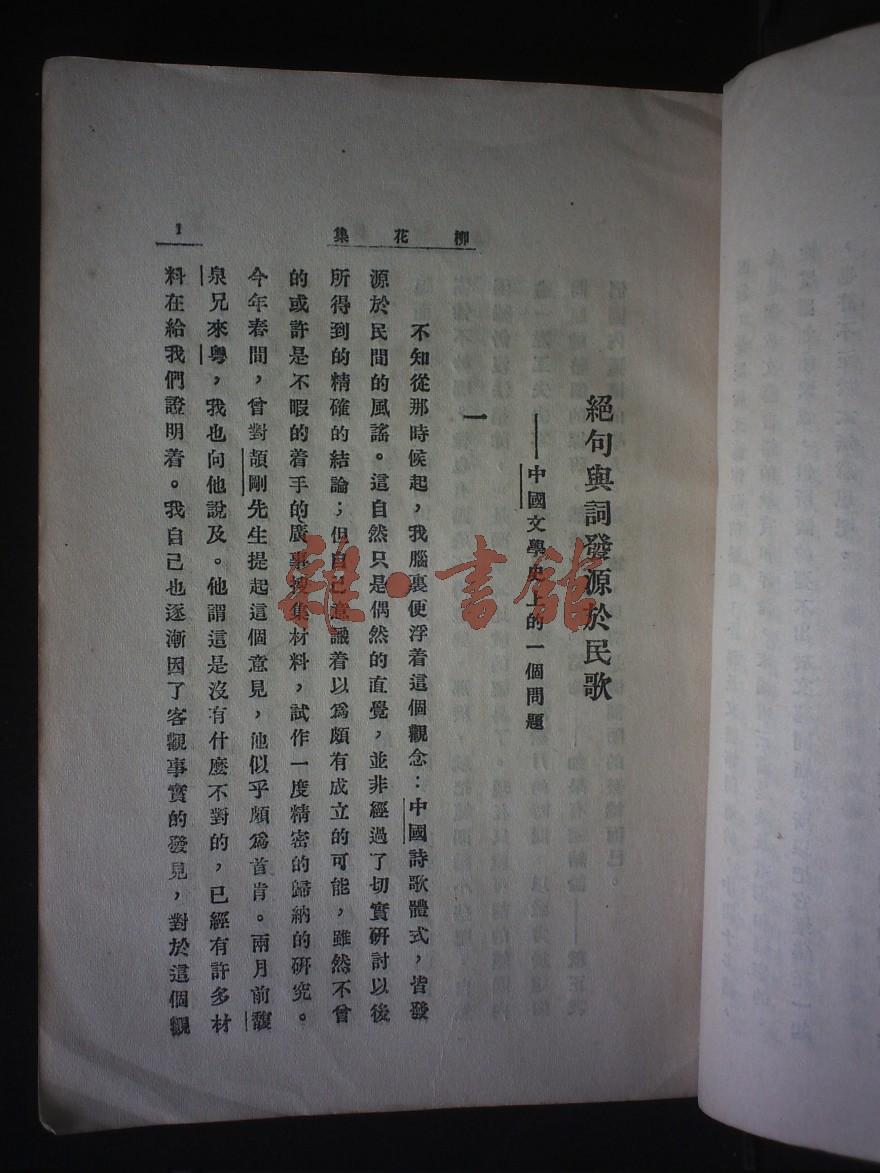 柳花集
1
絕句與詞發源於民歌
——中國文學史上的一個問題
一
不知從那時候起，我腦裏便浮着這個觀念：中國詩歌體式，皆發
源於民間的風謠。這自然只是偶然的直覺，並非經過了切實研討以後
所得到的精確的結論；但自己意識着以爲頗有成立的可能，雖然不曾
的或許是不暇的着手的廣事搜集材料，試作一度精密的歸納的研究。
今年春間，曾對頡剛先生提起這個意見，他似乎頗爲首肯。兩月前馥
泉兄來粵，我也向他說及。他謂這是沒有什麼不對的，已經有許多材
料在給我們證明着。我自己也逐漸因了客觀事實的發見，對於這個觀
雜·書館